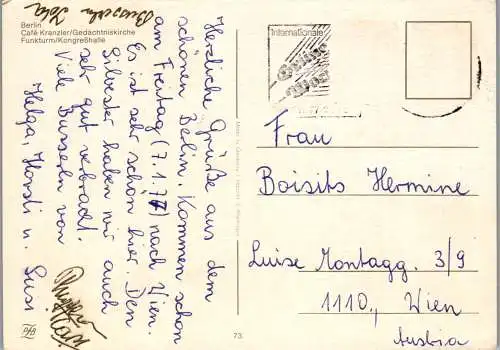 Berlin
Café Kranzler/Gedächtniskirche
Funkturm/Kongreßhalle
Herzliche Grüße aus dem
schönen Berlin. Kommen schon
am Freitag (7.1.77) nach Wien.
Es ist sehr schön hier. Den
Silvester haben wir auch
sehr gut verbracht.
Viele Busserln von
Helga, Horsti u. Susi
Internationale
Grüne
73
Frau
Boisits Hermine
Luise Montagg. 3/9
1110, Wien
Austria